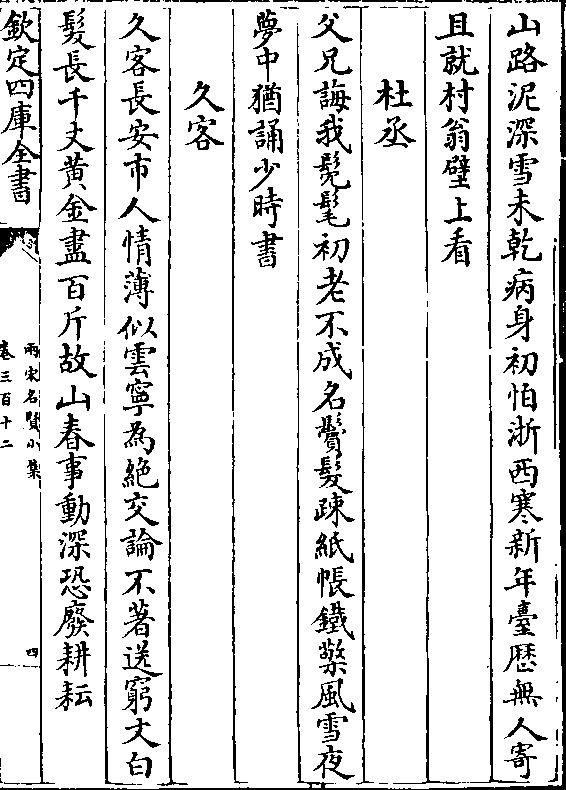 山路泥深雪未乾病身初怕浙西寒新年臺歴無人寄
且就村翁壁上看
杜丞
父兄誨我髧髦初老不成名鬢髮疎紙帳鐵檠風雪夜
夢中猶誦少時書
久客
久客長安市人情薄似雲寧為絶交論不著送窮文白
髮長千丈黄金盡百斤故山春事動深恐廢耕耘
欽定四庫全書
兩宋名賢小集
卷三百十二
四